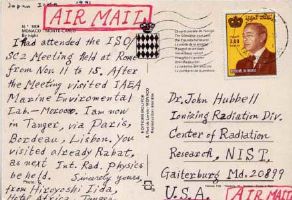 1991
AIR MAIL
MONACO MONTE-CARLO
I had attended the ISO/
SC2 Meeting held at Rome
from Nov 11 to 15. After
the Meeting visited IAEA
Marine Enviromental
Lab- Monaco. I am now
in Tanger, via Paris,
Bordeau, Lisbon. You
visited already Rabat,
as next Int. Rad. Physics
be held. Sincerely yours,
from Hiroyoshi Iida,
Hotel Africa, Tanger
Dr. John Hubbell
Ionizing Radiation Div.
Center of Radiation
Research, NIST,
Gaiterburg Md. 20899
U.S.A.
AIR MAIL